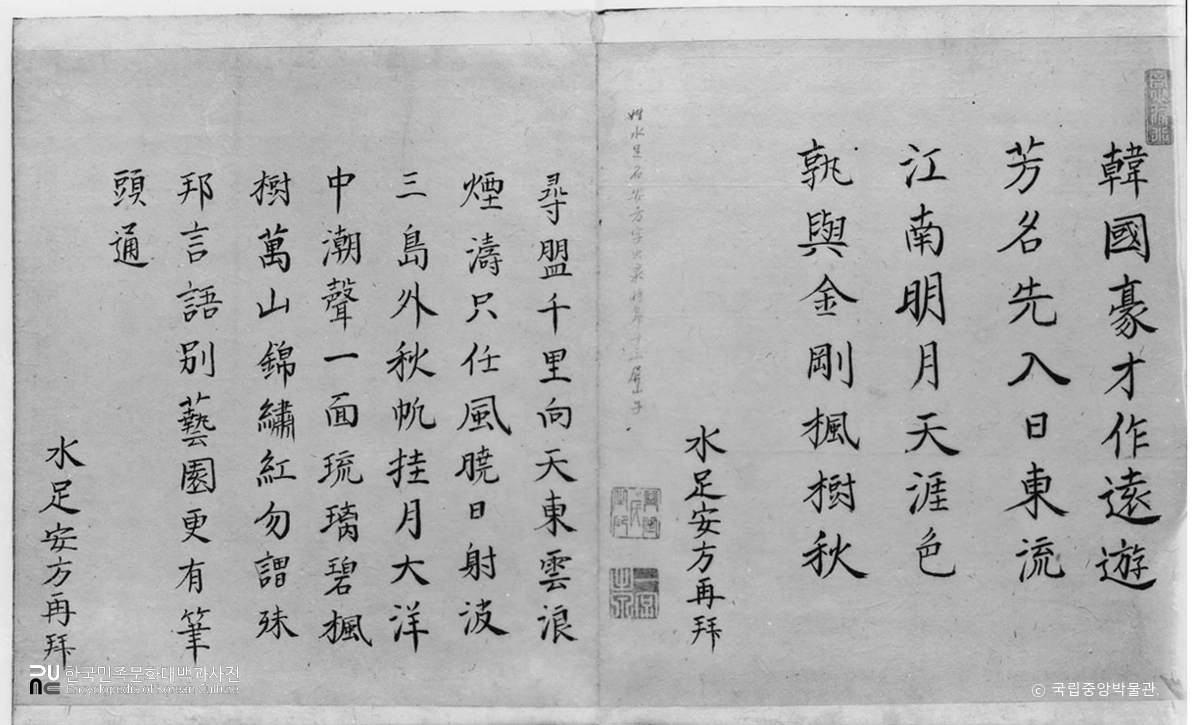 韓國豪才作遠遊
芳名先入日東流
江南明月天涯色
孰與金剛楓樹秋
水足安方再拜
姓水足名安方字
尋盟千里向天東雲浪
煙濤只任風曉日射波
三島外秋帆挂月大洋
中潮聲一面琉璃碧楓
樹萬山錦繡紅勿謂殊
邦言語別藝園更有筆
頭通
水足安方再拜
한국민족문화대백과사전
Encyclopedia of Korean Culture
© 국립중앙박물관.